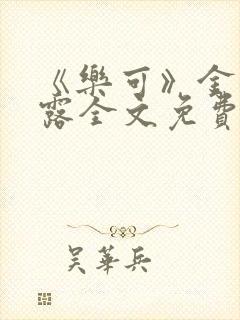 《樂可》金
露全文免費
吳華兵